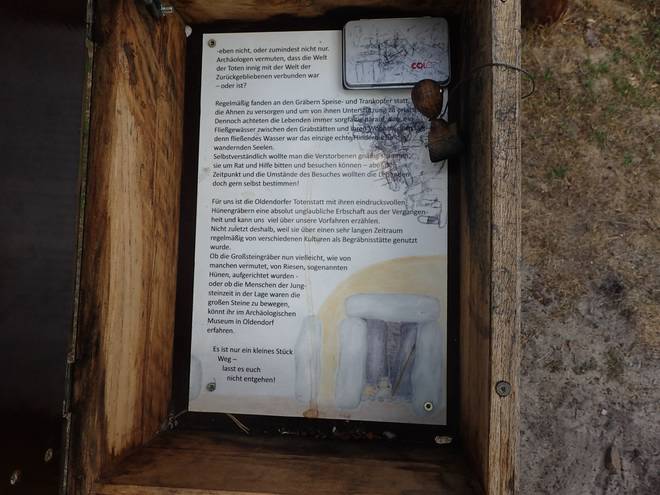 -eben nicht, oder zumindest nicht nur.
Archäologen vermuten, dass die Welt
der Toten innig mit der Welt der
Zurückgebliebenen verbunden war
– oder ist?
Regelmäßig fanden an den Gräbern Speise- und Trankopfer statt,
die Ahnen zu versorgen und um von ihnen Unterstützung zu
Dennoch achteten die Lebenden immer sorgfältig darauf,
Fließgewässer zwischen den Grabstätten und ihren
denn fließendes Wasser war das einzige echte Hindernis
wandernden Seelen.
Selbstverständlich wollte man die Verstorbenen gnädig stimmen,
sie um Rat und Hilfe bitten und besuchen können – aber den
Zeitpunkt und die Umstände des Besuches wollten die Lebenden
doch gern selbst bestimmen!
Für uns ist die Oldendorfer Totenstatt mit ihren eindrucksvollen
Hünengräbern eine absolut unglaubliche Erbschaft aus der Vergangen-
heit und kann uns viel über unsere Vorfahren erzählen.
Nicht zuletzt deshalb, weil sie über einen sehr langen Zeitraum
regelmäßig von verschiedenen Kulturen als Begräbnisstätte genutzt
wurde.
Ob die Großsteingräber nun vielleicht, wie von
manchen vermutet, von Riesen, sogenannten
Hünen, aufgerichtet wurden -
oder ob die Menschen der Jung-
steinzeit in der Lage waren die
großen Steine zu bewegen,
könnt ihr im Archäologischen
Museum in Oldendorf
erfahren.
Es ist nur ein kleines Stück
Weg –
lasst es euch
nicht entgehen!